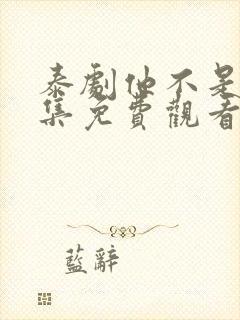 泰劇他不是
集免費觀看
藍辭